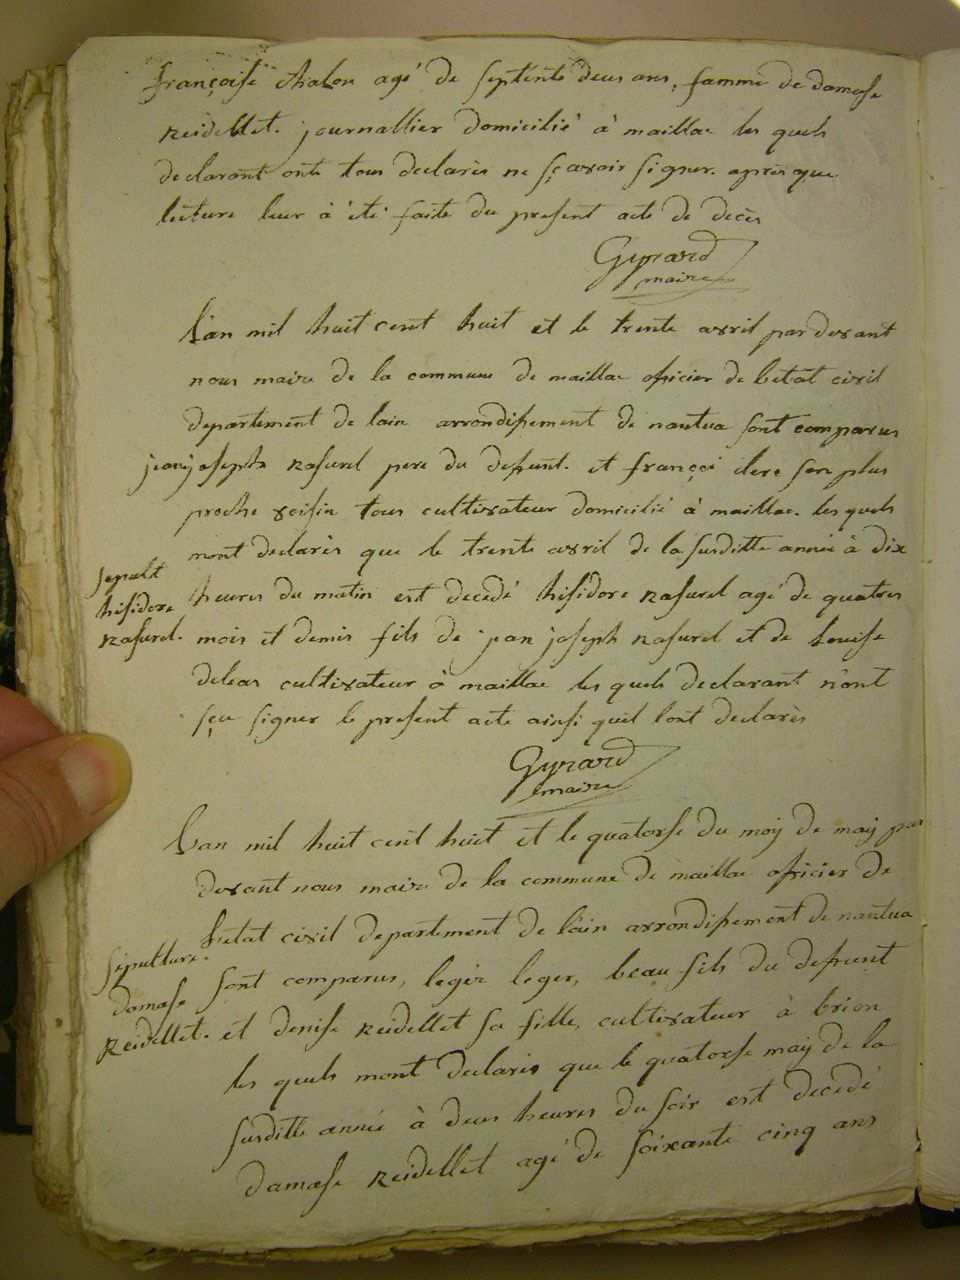 françoise chalon agé de septente deus ans, famme de damase
Reidellet. journallier domicilié à maillac les quels
declarant onts tous declarés ne sçavoir signer. après que
lecture leur à été faite du present acte de decès
Gynard
maire
L'an mil huit cent huit et le trente avril par devant
nous maire de la commune de maillac oficier de l'etat civil
departement de lain arrondissement de nantua sont comparus
jean joseph Rasurel pere du defunt. et françoi son plus
proche voisin tous cultivateur domicilié à maillac. les quels
mont declarés que le trente avril de la susditte année à dix
sepult
hisidore
Rasurel.
heures du matin est decedé hisidore Rasurel agé de quatres
mois et demis fils de jean joseph Rasurel et de Louise
deleas cultivateur à maillac les quels declarant n'ont
sçu signer le present acte ainsi quil l'ont declarés
Gynard
maire
L'an mil huit cent huit et le quatorse du moy de may par
devant nous maire de la commune de maillac oficier de
l'etat civil departement de lain arrondissement de nantua
sepulture.
damase
Reidellet.
sont comparus, legér leger, beau fils du defunt
et denise Reidellet sa fille, cultivateur à brion
les quels mont declarés que le quatorse may de la
susditte année à deus heures du soir est decedé
damase Reidellet agé de soixante cinq ans